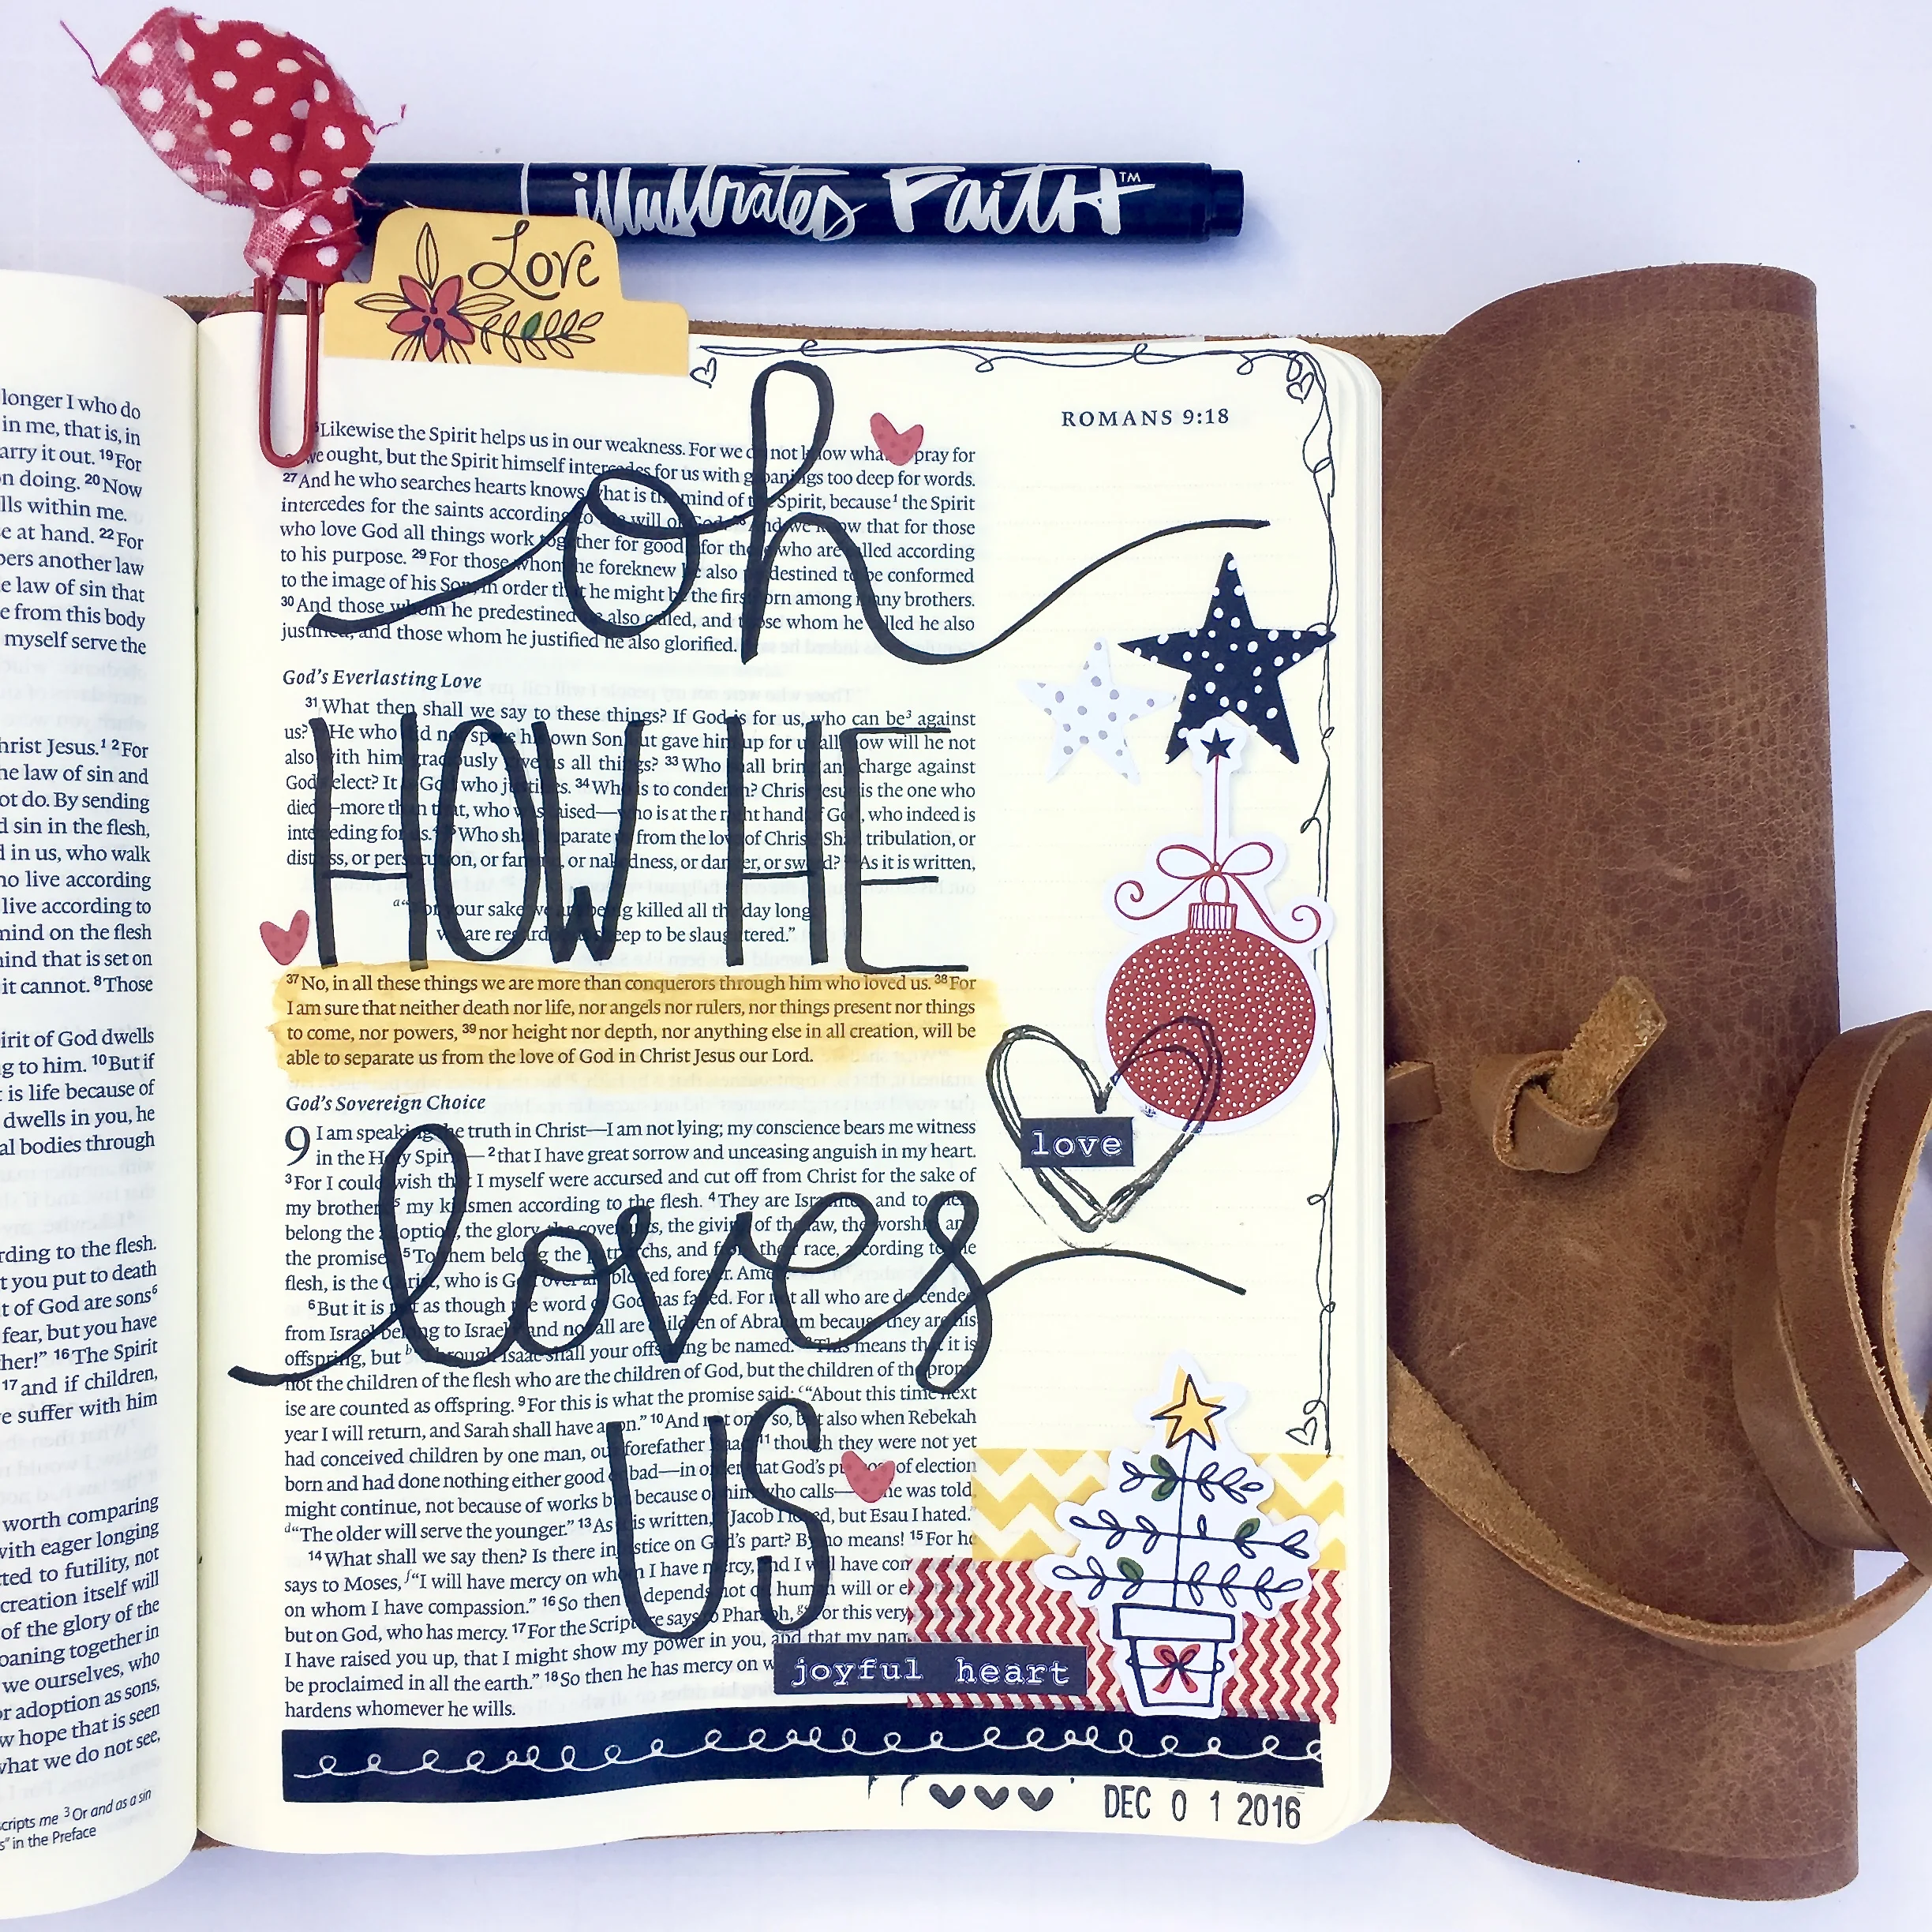 illustrated Faith™
Love
longer I who do
in me, that is, in
arry it out. 19 For
n doing. 20 Now
lls within me.
e at hand. 22 For
bers another law
e law of sin that
e from this body
myself serve the
hrist Jesus.1 2 For
he law of sin and
ot do. By sending
d sin in the flesh,
d in us, who walk
ho live according
live according to
mind on the flesh
mind that is set on
it cannot. 8 Those
irit of God dwells
g to him. 10 But if
t is life because of
dwells in you, he
al bodies through
rding to the flesh.
t you put to death
t of God are sons6
fear, but you have
her!” 16 The Spirit
17 and if children,
e suffer with him
worth comparing
with eager longing
cted to futility, not
creation itself will
of the glory of the
oaning together in
we ourselves, who
or adoption as sons,
w hope that is seen
what we do not see,
scripts me 3 Or and as a sin
s” in the Preface
ROMANS 9:18
oh
HOW HE
loves
US
Likewise the Spirit helps us in our weakness. For we do not know what pray for
we ought, but the Spirit himself intercedes for us with groanings too deep for words.
27 And he who searches hearts knows what is the mind of the Spirit, because1 the Spirit
intercedes for the saints according to the will of God. 28 And we know that for those
who love God all things work together for good, for those who are called according
to his purpose. 29 For those whom he foreknew he also predestined to be conformed
to the image of his Son, in order that he might be the firstborn among many brothers.
30 And those whom he predestined he also called, and those whom he called he also
justified, and those whom he justified he also glorified.
God’s Everlasting Love
31 What then shall we say to these things? If God is for us, who can be3 against
us? He who did not spare his own Son but gave him up for us all, how will he not
also with him graciously give us all things? 33 Who shall bring any charge against
God's elect? It is God who justifies. 34 Who is to condemn? Christ Jesus is the one who
died—more than that, who was raised—who is at the right hand of God, who indeed is
interceding for us.4 35 Who shall separate us from the love of Christ? Shall tribulation, or
distress, or persecution, or famine, or nakedness, or danger, or sword? 36 As it is written,
a“For your sake we are being killed all the day long;
we are regarded as sheep to be slaughtered.”
37 No, in all these things we are more than conquerors through him who loved us. 38 For
I am sure that neither death nor life, nor angels nor rulers, nor things present nor things
to come, nor powers, 39 nor height nor depth, nor anything else in all creation, will be
able to separate us from the love of God in Christ Jesus our Lord.
God’s Sovereign Choice
9 I am speaking the truth in Christ—I am not lying; my conscience bears me witness
in the Holy Spirit—2 that I have great sorrow and unceasing anguish in my heart.
3 For I could wish that I myself were accursed and cut off from Christ for the sake of
my brothers,5 my kinsmen according to the flesh. 4 They are Israelites, and to them
belong the adoption, the glory, the covenants, the giving of the law, the worship, and
the promises. 5 To them belong the patriarchs, and from their race, according to the
flesh, is the Christ, who is God over all, blessed forever. Amen.
6 But it is not as though the word of God has failed. For not all who are descended
from Israel belong to Israel, 7 and not all are children of Abraham because they are his
offspring, but b“Through Isaac shall your offspring be named.” 8 This means that it is
not the children of the flesh who are the children of God, but the children of the prom-
ise are counted as offspring. 9 For this is what the promise said: c“About this time next
year I will return, and Sarah shall have a son.” 10 And not only so, but also when Rebekah
had conceived children by one man, our forefather Isaac, 11 though they were not yet
born and had done nothing either good or bad—in order that God’s purpose of election
might continue, not because of works but because of him who calls— he was told,
d“The older will serve the younger.” 13 As it is written, “Jacob I loved, but Esau I hated.”
14 What shall we say then? Is there injustice on God’s part? By no means! 15 For he
says to Moses, f“I will have mercy on whom I have mercy, and I will have com
on whom I have compassion.” 16 So then it depends not on human will or e
but on God, who has mercy. 17 For the Scripture says to Pharaoh, g“For this very
I have raised you up, that I might show my power in you, and that my nam
be proclaimed in all the earth.” 18 So then he has mercy on w
hardens whomever he wills.
love
joyful heart
DEC 0 1 2016